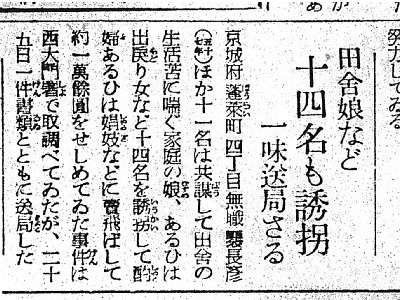 努力してゐる
田舍娘など
十四名も誘拐
一味送局さる
京城府蓬萊町四丁目無職 長彦
ほか十一名は共謀して田舍の
生活苦に喘ぐ家庭の娘、あるひは
出戾り女など十四名を誘拐して酌
婦あるひは娼妓などに賣飛ばして
約一萬餘圓をせしめてゐた事件は
西大門署で取調べてゐたが、二十
五日一件書類とともに送局した